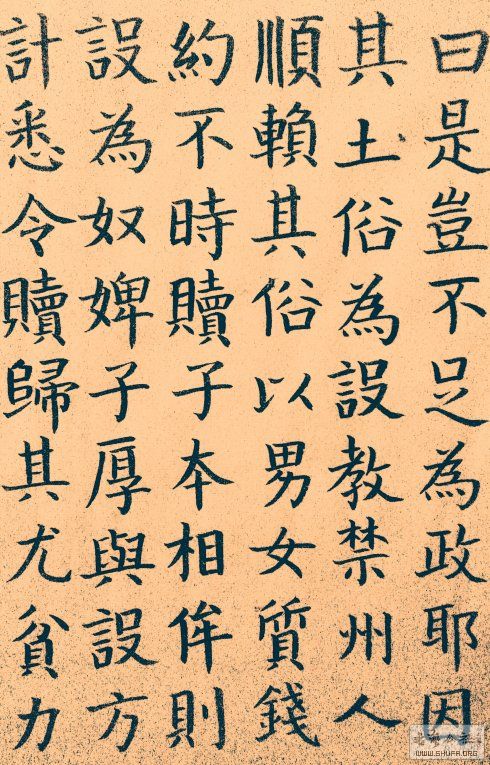 曰是豈不足為政耶因
其土俗為設教禁州人
順賴其俗以男女質錢
約不時贖子本相侔則
設為奴婢子厚與設方
計悉令贖歸其尤貧力
WWW.SHUFA.ORG